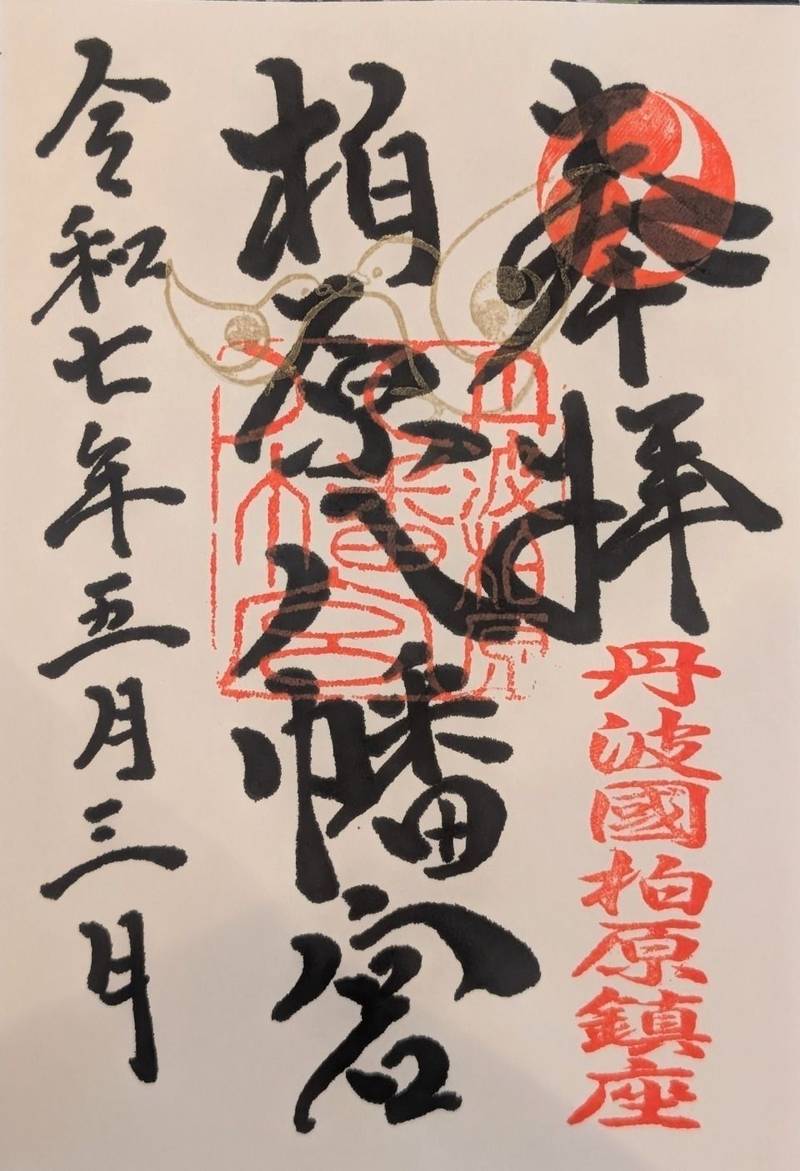 奉拝
丹波國柏原鎮座
柏原八幡宮
丹波柏原
八幡宮
令和七年五月三日